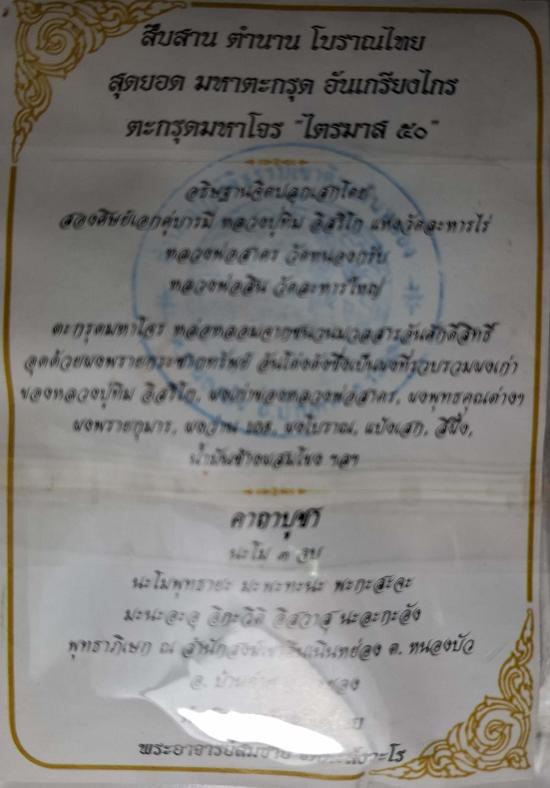 สืบสาน ตำนาน โบราณไทย
สุดยอด มหาตะกรุด อันเกรียงไกร
ตะกรุดมหาโจร "ไตรมาส ๕๐"
อธิษฐานจิตปลุกเสกโดย
สองศิษย์เอกคู่บารมี หลวงปู่ทิม อิสริโก แห่งวัดละหารไร่
หลวงพ่อสาคร วัดหนองกรับ
หลวงพ่อสิน วัดละหารใหญ่
ตะกรุดมหาโจร หล่อหลอมจากชนวนมวลสารอันศักดิ์สิทธิ์
อุดด้วยผงพรายกระชากทรัพย์ อันโด่งดังซึ่งเป็นผงที่รวบรวมผงเก่า
ของหลวงปู่ทิม อิสริโก, ผงเก่าของหลวงพ่อสาคร, ผงพุทธคุณต่างๆ
ผงพรายกุมาร, ผงว่าน ๑๐๘, ผงโบราณ, แป้งเสก, สีผึ้ง,
น้ำมันช้างผสมโขลง ฯลฯ
คาถาบูชา
นะโม ๓ จบ
นะโมพุทธายะ มะพะทะนะ พะกะสะจะ
มะนะอะอุ อิกะวิติ อิสวาสุ นะอะกะอัง
พุทธาภิเษก ณ สำนักสงฆ์เขาดินเนินหย่อง ต. หนองบัว
อ. บ้านค่าย
พระอาจารย์สมชาย